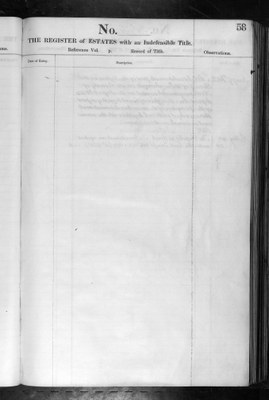 58
No.
THE REGISTER of ESTATES with an Indefeasible Title.
Reference Vol. p. Record of Title.
Observations.
Date of Entry.
Description.